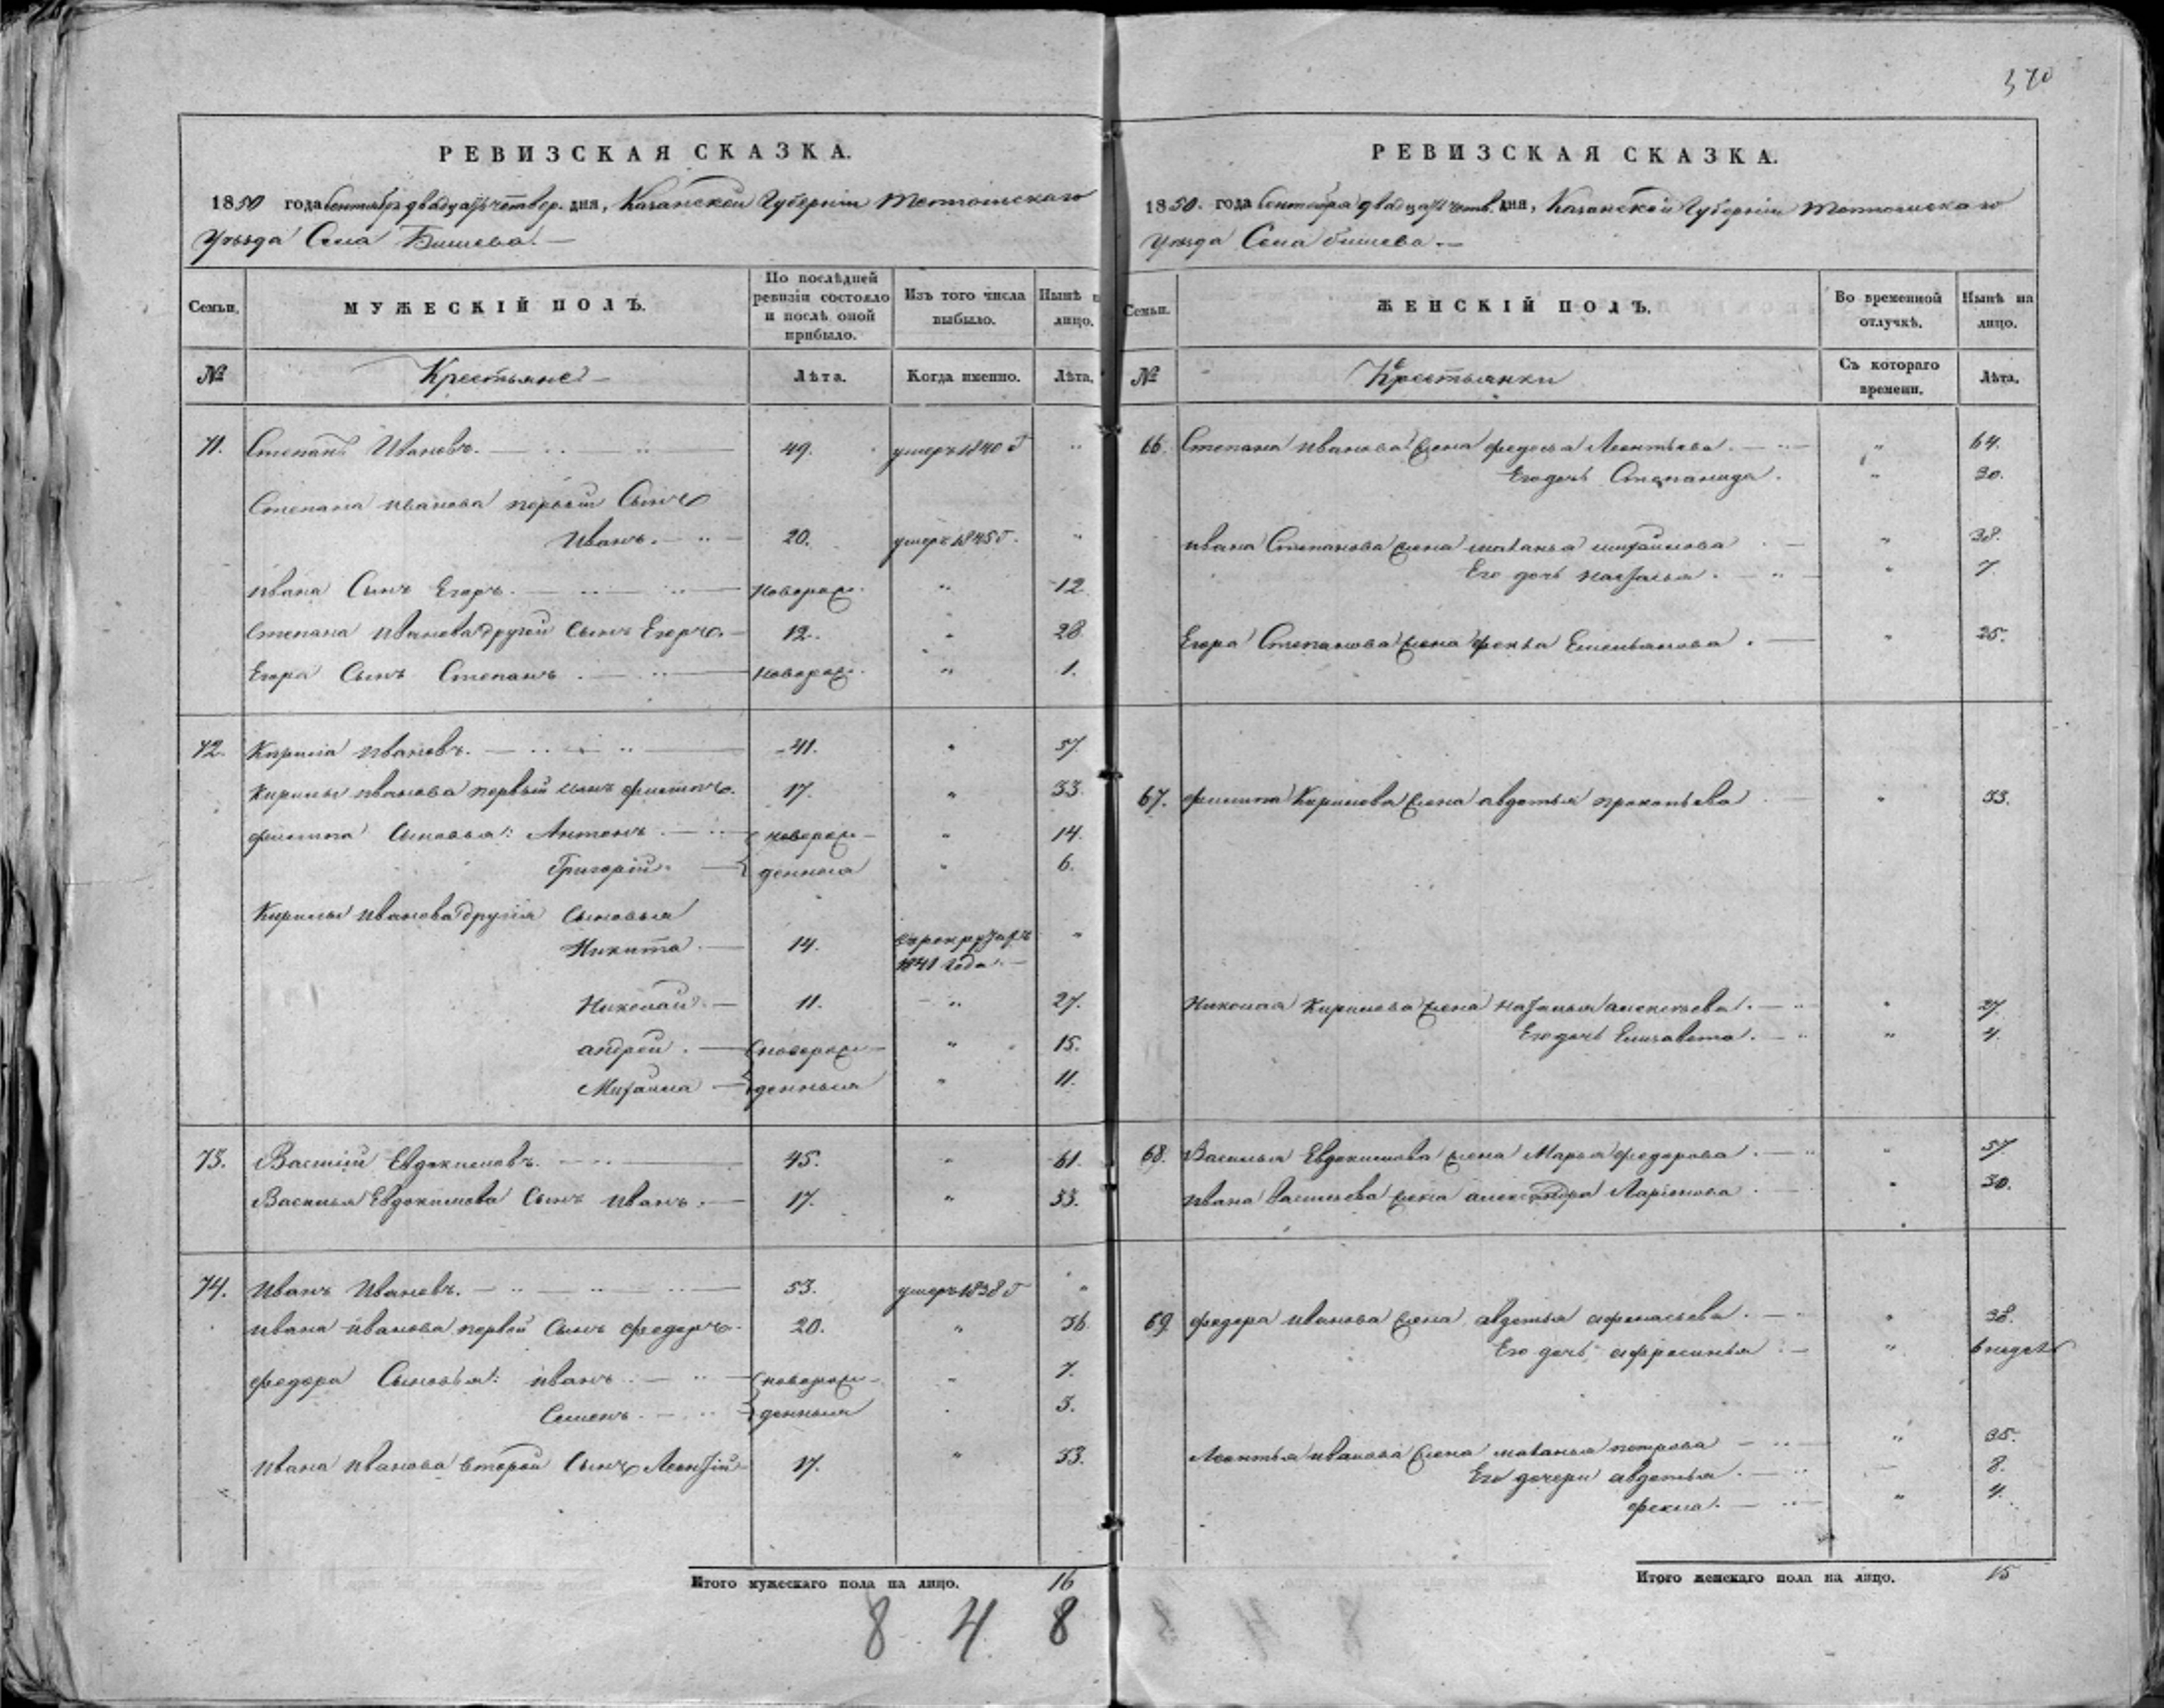 370
РЕВИЗСКАЯ СКАЗКА.
1850 года Сентября двадцать четвер. дня, Казанской Губерніи Тетюшскаго
Уѣзда Села Бишева.
Семьи.
МУЖЕСКІЙ ПОЛЪ.
По послѣдней ревизіи состояло и послѣ оной прибыло.
Изъ того числа выбыло.
Нынѣ н лицо.
№
Крестьяне
Лѣта.
Когда именно.
Лѣта.
71. Степанъ Ивановъ. 49. умеръ 1840 г "
Степана иванова первый Сынъ
Иванъ. 20. умеръ 1845 г. "
ивана Сынъ Егоръ. новорож. " 12
Степана Иванова другой Сынъ Егоръ. 12. " 28
Егора Сынъ Степанъ. новорож. " 1.
72. Кирила ивановъ. 41. " 57.
Кирилы иванова первый сынъ филипъ. 17. " 33
филипа Сыновья: Антонъ. новорож- " 14.
Григорій. денныя " 6.
Кирилы иванова другія Сыновья
Никита. 14. "
1841 года.
Николай. 11. " 27.
андрей. новорож- " 15.
Михаила денныя " 11.
73. Василій Евдокимовъ. 45. " 61.
Василья Евдокимова Сынъ иванъ. 17. " 33.
74. Иванъ Ивановъ. 53. умеръ 1838 г "
ивана иванова первой Сынъ федоръ. 20. " 36
федора Сыновья: иванъ. новорож- " 7.
Семенъ. денныя " 3.
ивана иванова второй Сынъ Леонтій 17. " 33.
Итого мужескаго пола на лицо. 16
8 4 8
РЕВИЗСКАЯ СКАЗКА.
1850. года Сентября двадцать четв. дня, Казанской Губерніи Тетюшскаго
Уѣзда Села бишева.
Семьи.
ЖЕНСКІЙ ПОЛЪ.
Во временной отлучкѣ.
Нынѣ на лицо.
№
Крестьянки
Съ котораго времени.
Лѣта.
66. Степана иванова жена федосья Леонтьева. " 64.
Его дочь Степанида. " 20.
ивана Степанова жена маланья михайлова " 38.
Его дочь наталья. " 7.
Егора Степанова жена фекла Емельянова. " 25.
67. филипа Кирилова жена авдотья прокопьева " 33.
Николая Кирилова жена наталья алексѣева. " 27.
Его дочь Елизавета. " 4.
68. Василья Евдокимова жена Марья федорова. " 57.
ивана васильева жена александра Ларіонова. " 30.
69. федора иванова жена авдотья афонасьева. " 38.
Его дочь афросинья. " 6 недел
Леонтья иванова жена маланья петрова " 35.
Его дочери авдотья. 8.
фекла. " 4.
Итого женскаго пола на лицо. 15